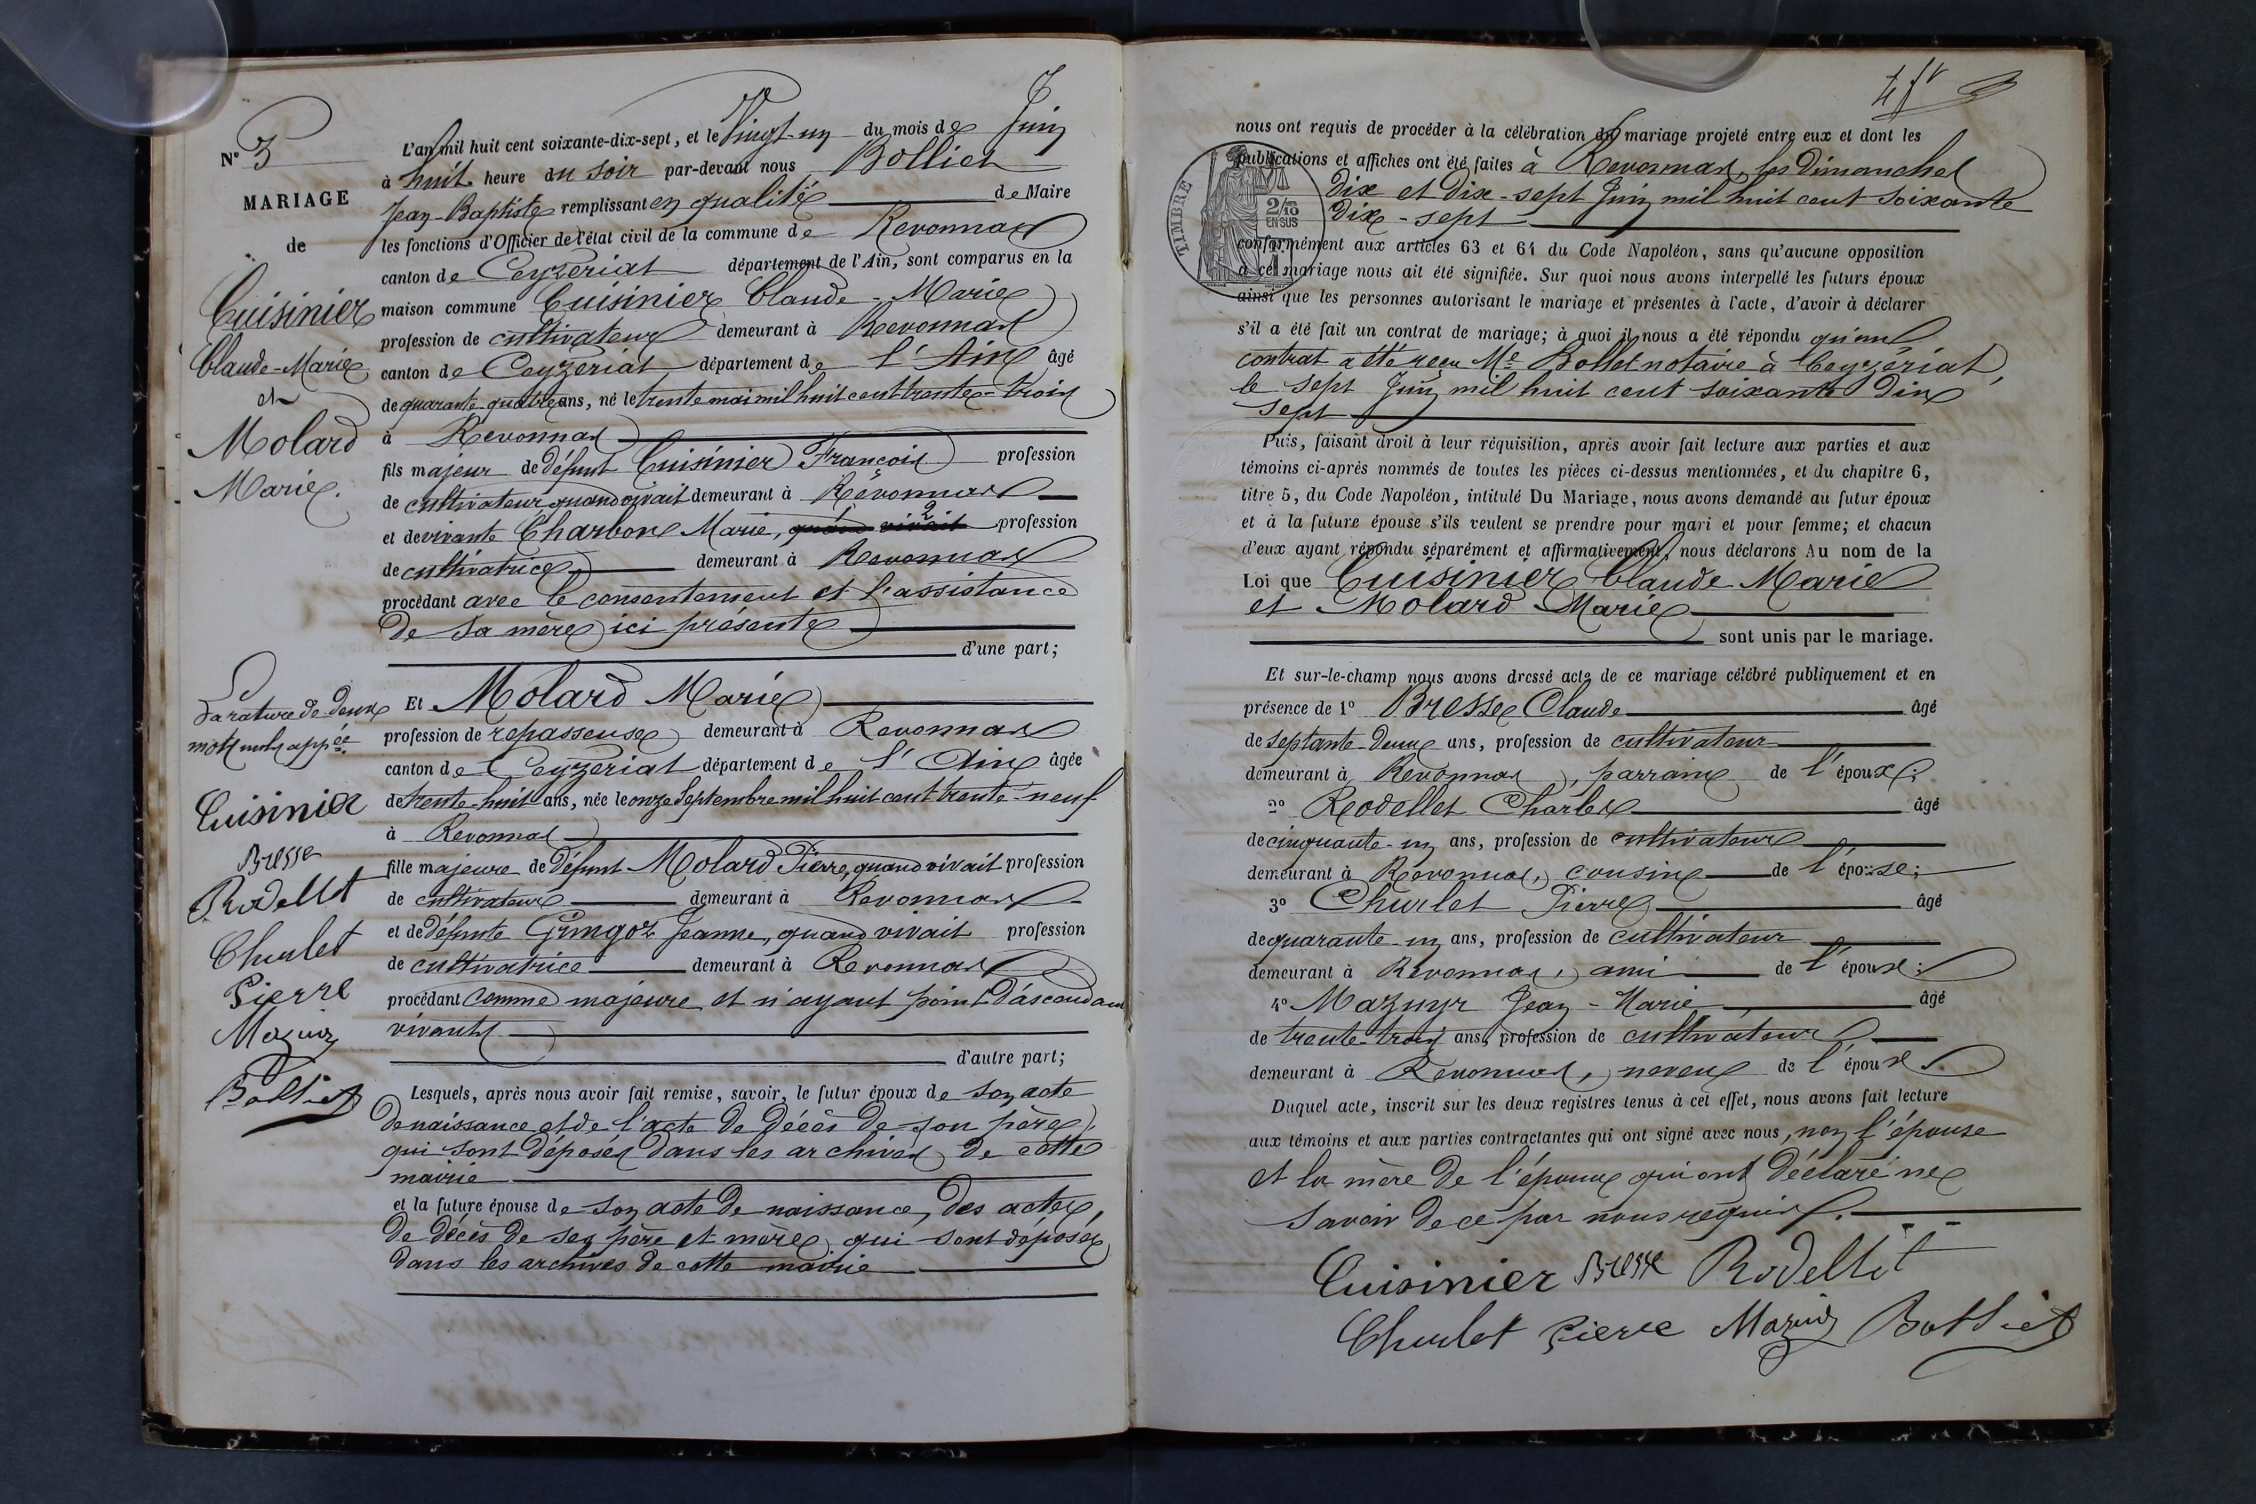 N° 3
MARIAGE
de
Cuisinier
Claude-Marie
et
Molard
Marie.
L'an mil huit cent soixante-dix-sept, et le Vingt-un du mois de Juin
à huit heure du soir par-devant nous Bolliet
Jean-Baptiste remplissant en qualité de Maire
les fonctions d'Officier de l'état civil de la commune de Revonnas
canton de Ceyzeriat département de l'Ain, sont comparus en la
maison commune Cuisinier Claude-Marie
profession de cultivateur demeurant à Revonnas
canton de Ceyzeriat département de l'Ain âgé
de quarante quatre ans, né le trente mai mil huit cent trente-trois
à Revonnas
fils majeur de défunt Cuisinier François profession
de cultivateur quand vivait demeurant à Révonnas
et de vivante Charbon Marie, quand vivait profession
de cultivatrice demeurant à Revonnas
procédant avec le consentement et l'assistance
de sa mère ici présente
d'une part;
La rature de deux
mots nuls app.ée
Et Molard Marie
profession de repasseuse demeurant à Revonnas
canton de Ceyzeriat département de l'Ain âgée
de trente-huit ans, née le onze Septembre mil huit cent trente-neuf
à Revonnas
fille majeure de défunt Molard Pierre, quand vivait profession
de cultivateur demeurant à Revonnas
et de défunte Gringoz Jeanne, quand vivait profession
de cultivatrice demeurant à Revonnas
procédant comme majeure et n'ayant point d'ascendant
vivants
d'autre part;
Cuisinier
Bresse
Rodellet
Churlet
Pierre
Mazuir
Bolliet
Lesquels, après nous avoir fait remise, savoir, le futur époux de son acte
de naissance et de l'acte de décès de son père,
qui sont déposés dans les archives de cette
mairie
et la future épouse de son acte de naissance, des actes,
de décès de ses père et mère, qui sont déposés
dans les archives de cette mairie
nous ont requis de procéder à la célébration du mariage projeté entre eux et dont les
publications et affiches ont été faites à Revonnas, les Dimanches
dix et dix-sept Juin mil huit cent soixante
dix-sept
TIMBRE
2/10
EN SUS
conformément aux articles 63 et 64 du Code Napoléon, sans qu'aucune opposition
à cet mariage nous ait été signifiée. Sur quoi nous avons interpellé les futurs époux
ainsi que les personnes autorisant le mariage et présentes à l'acte, d'avoir à déclarer
s'il a été fait un contrat de mariage; à quoi il nous a été répondu qu'un
contrat a été reçu Me Bollet notaire à Ceyzériat,
le sept Juin mil huit cent soixante dix
sept
Puis, faisant droit à leur réquisition, après avoir fait lecture aux parties et aux
témoins ci-après nommés de toutes les pièces ci-dessus mentionnées, et du chapitre 6,
titre 5, du Code Napoléon, intitulé Du Mariage, nous avons demandé au futur époux
et à la future épouse s'ils veulent se prendre pour mari et pour femme; et chacun
d'eux ayant répondu séparément et affirmativement, nous déclarons Au nom de la
Loi que Cuisinier Claude Marie
et Molard Marie
sont unis par le mariage.
Et sur-le-champ nous avons dressé acte de ce mariage célébré publiquement et en
présence de 1° Bresse Claude âgé
de septante-deux ans, profession de cultivateur
demeurant à Revonnas, parrain de l'époux;
2° Rodellet Charles âgé
de cinquante-un ans, profession de cultivateur
demeurant à Revonnas, cousin de l'épouse;
3° Churlet Pierre âgé
de quarante-un ans, profession de cultivateur
demeurant à Revonnas, ami de l'épouse;
4° Mazuyr Jean-Marie âgé
de trente-trois ans, profession de cultivateur
demeurant à Revonnas, neveu de l'épouse
Duquel acte, inscrit sur les deux registres tenus à cet effet, nous avons fait lecture
aux témoins et aux parties contractantes qui ont signé avec nous, non l'épouse
et la mère de l'époux qui ont déclaré ne
savoir de ce par nous requis.
Cuisinier Bresse Rodellet
Churlet Pierre Mazuir Bolliet